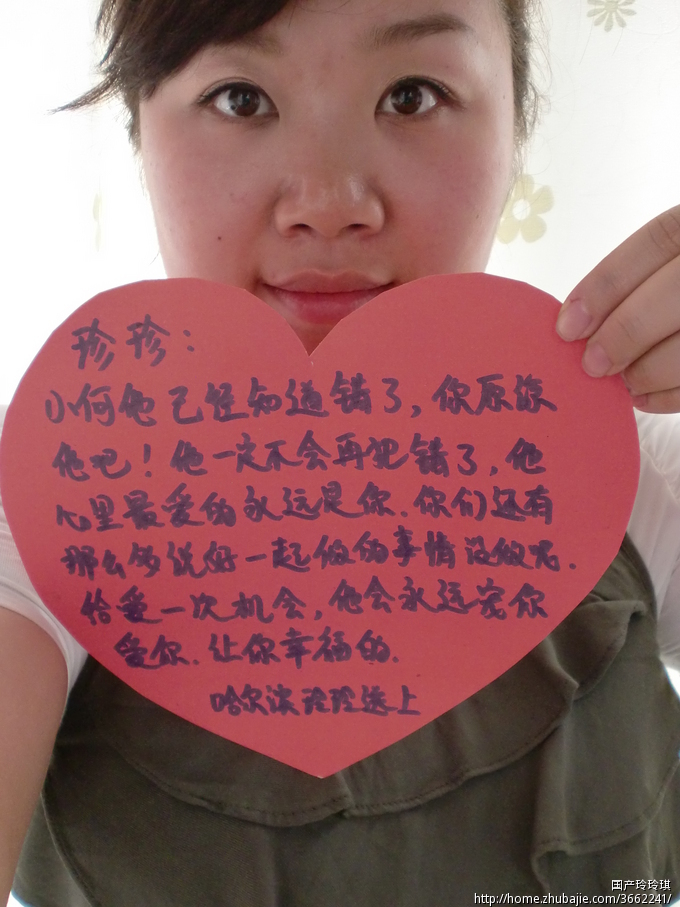 珍珍：
小何他已经知道错了，你原谅
他吧！他一定不会再犯错了，他
心里最爱的永远是你．你们还有
那么多说好一起做的事情没做呢．
给爱一次机会，他会永远宠你
爱你．让你幸福的．
哈尔滨玲玲送上
国产玲玲琪
http://home.zhubajie.com/3662241/